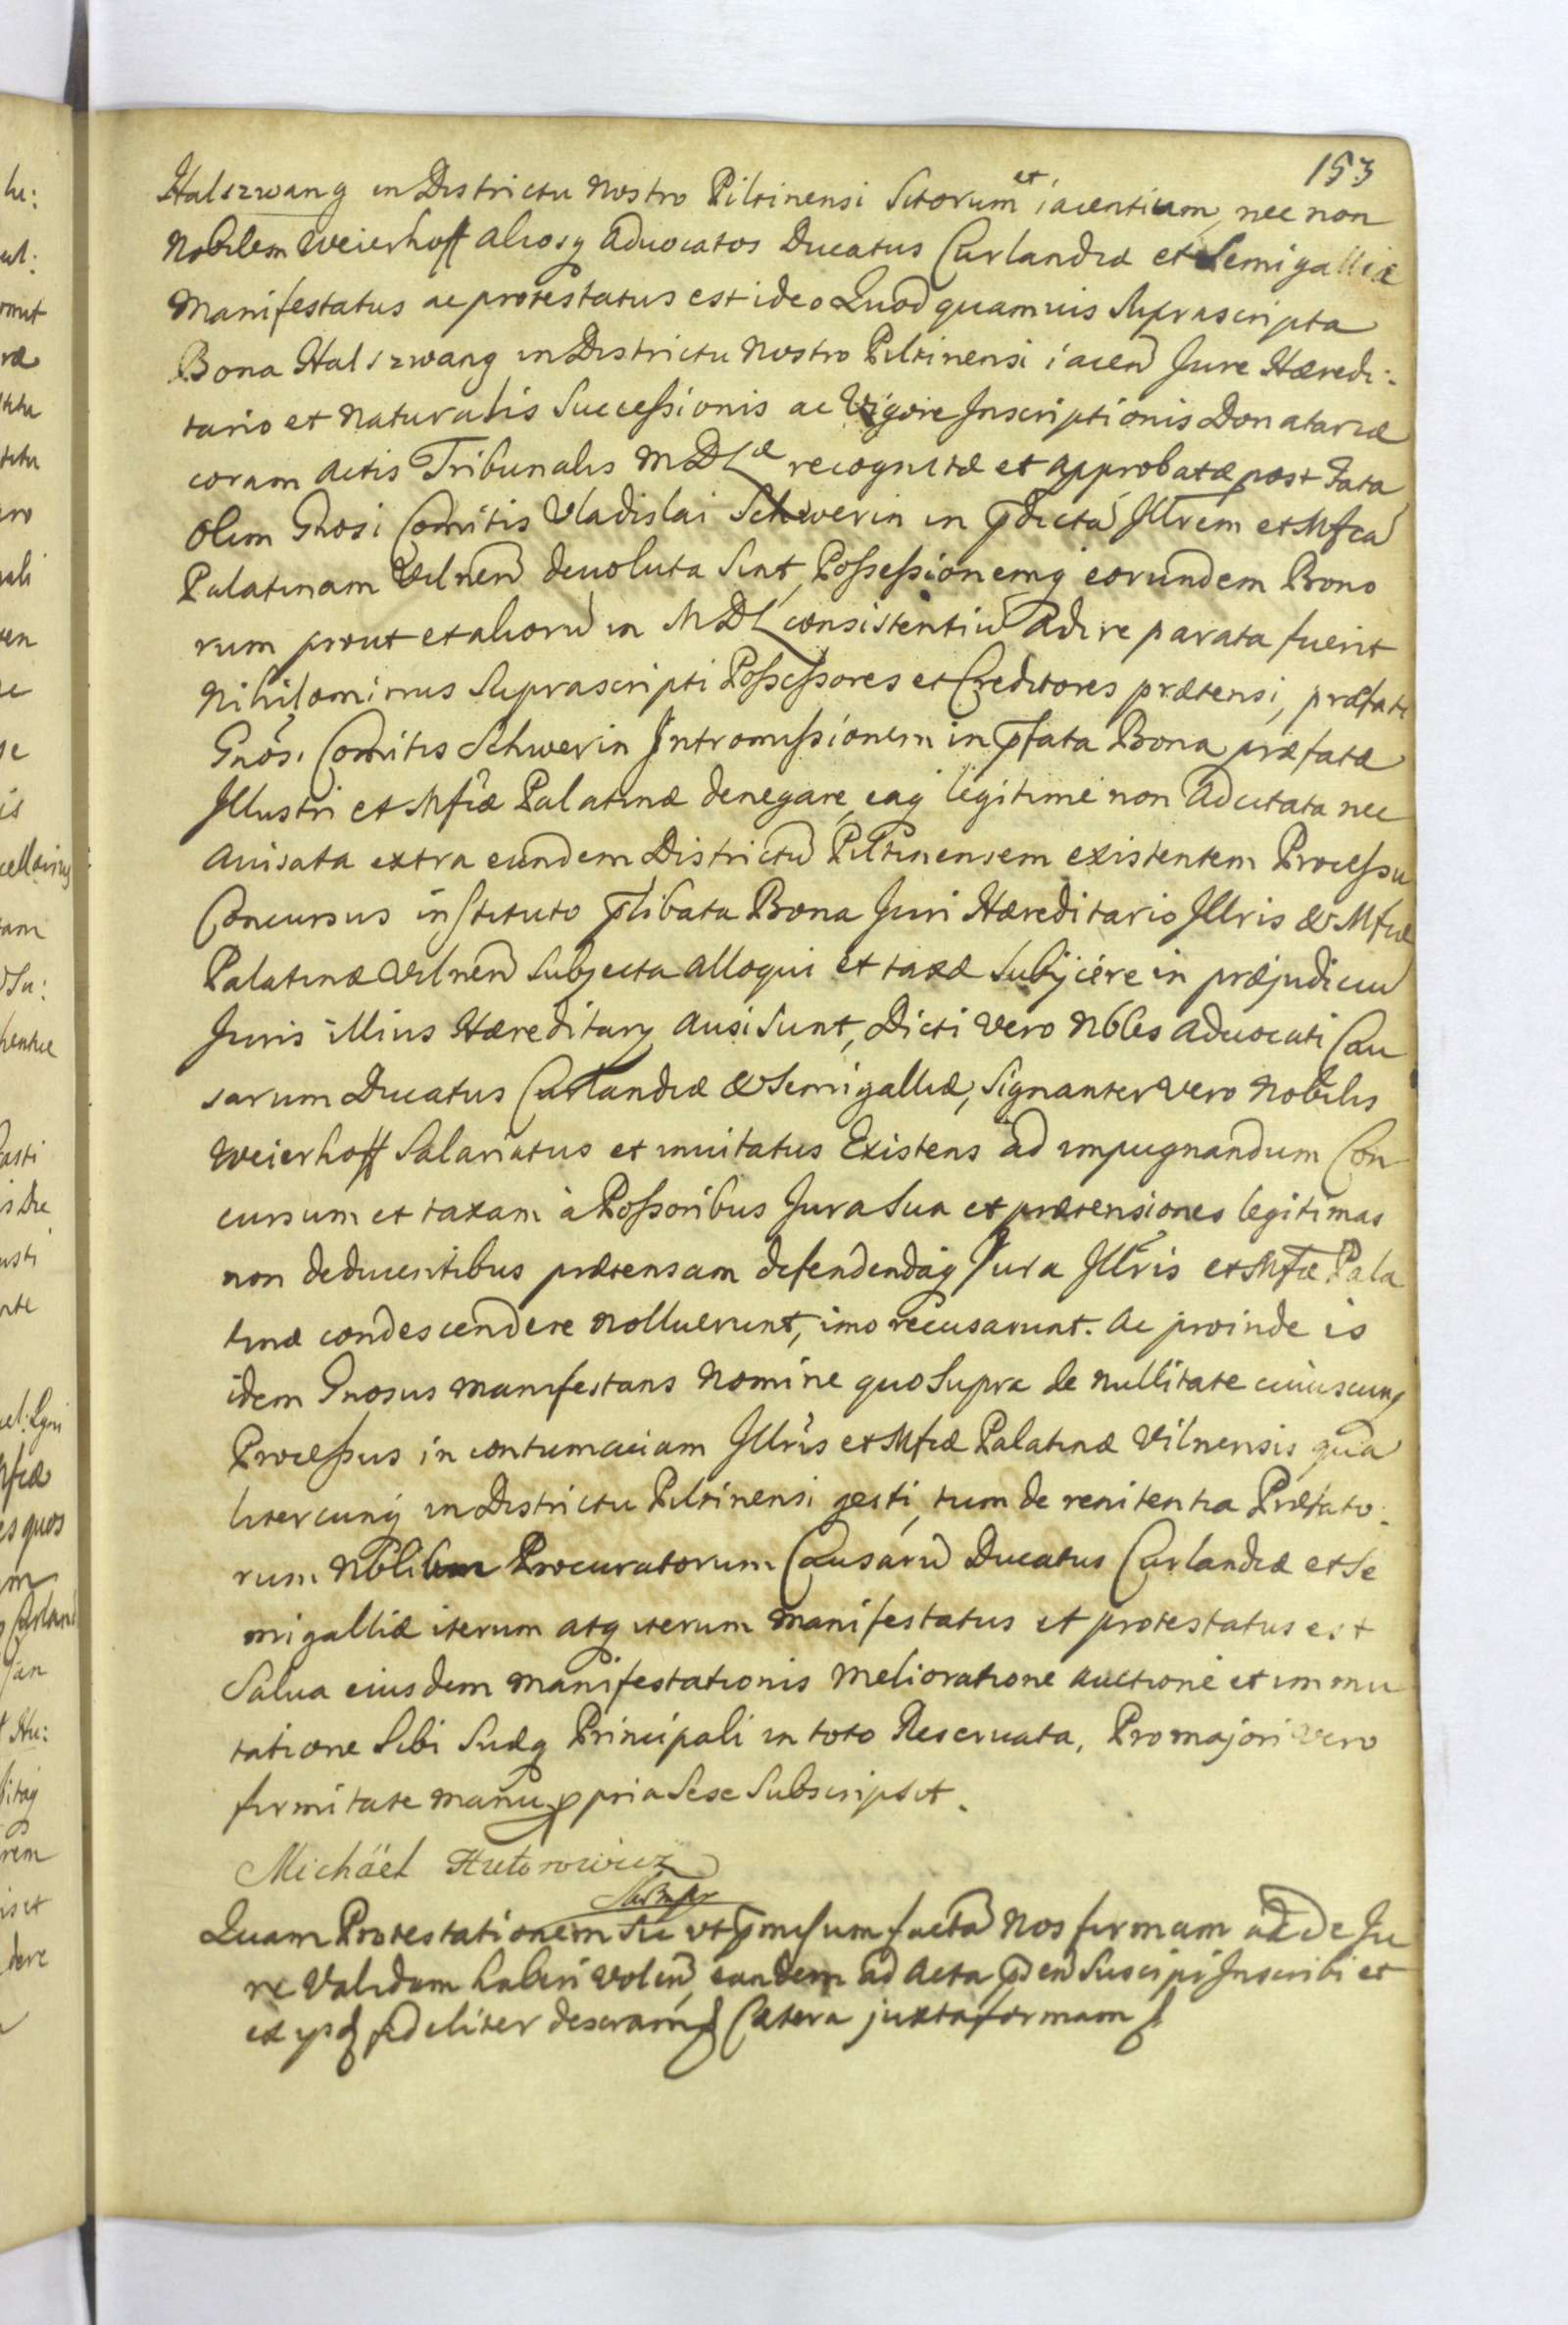 153
Halszwang in Districtu Nostro Piltinensi Sitorum et iacentium, nec non
Nobilem Weierhoff aliosq Aduocatos Ducatus Curlandiæ et Semigalliæ
Manifestatus ac protestatus est ideo Quod quamuis Suprascripta
Bona Halszwang in Districtu Nostro Piltinensi iacen Jure Hæredi:
tario et Naturalis Successionis ac Vigore Inscriptionis Donatariæ
coram Actis Tribunalis MDLæ recognitæ et approbatæ post Fata
olim Gnosi Comitis Vladislai Schwerin in pdictá Jllrem et Mfcá
Palatinam Vilnen deuoluta Sint, Possessionemq eorundem Bono
rum prout et aliorũ in MDL consistentiũ adire parata fuerit
Nihilominus Suprascripti Possessores et Creditores prætensi, præfati
Gnosi Comitis Schwerin Intromissionem in pfata Bona præfatæ
Jllustri et Mfcæ Palatinæ denegare, eaq legitimè non adcitata nec
auisata extra eundem Districtũ Piltinensem existentem Processu
Concursus instituto plibata Bona Juri Hæreditario Jllris & Mfcæ
Palatinæ Vilnen Subjecta alloqui et taxæ Subijcere in præjudiciũ
Juris illius Hæreditarij ausi Sunt, Dicti vero Nbles Aduocati Cau
sarum Ducatus Curlandiæ & Semigalliæ, Signanter vero Nobilis
Weierhoff Salariatus et inuitatus Existens ad impugnandum Con
cursum et taxam à Possoribus Jura Sua et prætensiones legitimas
non deducentibus prætensam defendendaq Jura Jllris et Mfcæ Pala
tinæ condescendere Nolluerunt, imo recusarunt. Ac proinde is
idem Gnosus Manifestans Nomine quo Supra de Nullitate cuiuscunq
Processus in contumaciam Jllris et Mfcæ Palatinæ Vilnensis qua
litercunq in Districtu Piltinensi gesti, tum de renitentia Præfato:
rum Nblium Procuratorum Causarũ Ducatus Curlandiæ et Se
migalliæ iterum atq iterum Manifestatus et protestatus est
Salua eiusdem Manifestationis Melioratione auctione et immu
tatione Sibi Suæq Principali in toto Reseruata, Pro majori vero
firmitate manu ppria Sese Subscripsit.
Michäel Hutorowicz
Quam Protestationem Sic vt pmissum factã Nos firmam ac de Ju
re Validam haberi volen, eandem ad Acta pden Suscipi Inscribi et
ex ijsd fideliter Cætera juxta formam